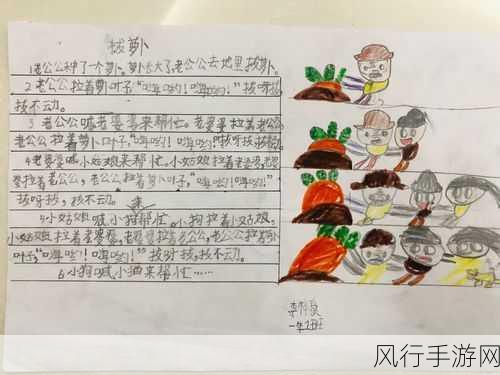 拔萝卜
1老公公种了一个萝卜。萝卜长大了,老公公去地里拔萝卜。
2老公公拉着萝卜叶子"嗨哟!嗨哟!"拔呀拔
拔不动。
3老公公喊老婆婆来帮忙。老婆婆拉着老公公,
老公公拉着萝卜叶子:"嗨哟!嗨哟!"拔呀拔,拔不动
4老婆婆喊小姑娘来帮忙。小姑娘拉着老婆婆,老婆
婆拉着老公公,老公公拉着萝卜叶子,"嗨哟!嗨哟!"
拔呀拔,拔不动。
5小姑娘喊小狗帮忙。小狗拉着小姑娘,
小姑娘拉着老婆婆,老婆婆拉着老公公,老公公拉萝卜
叶子,"嗨哟!嗨哟!"拔呀拔,拔不动。
6小狗喊小猫来帮忙……
李
一年2班
风行手游网